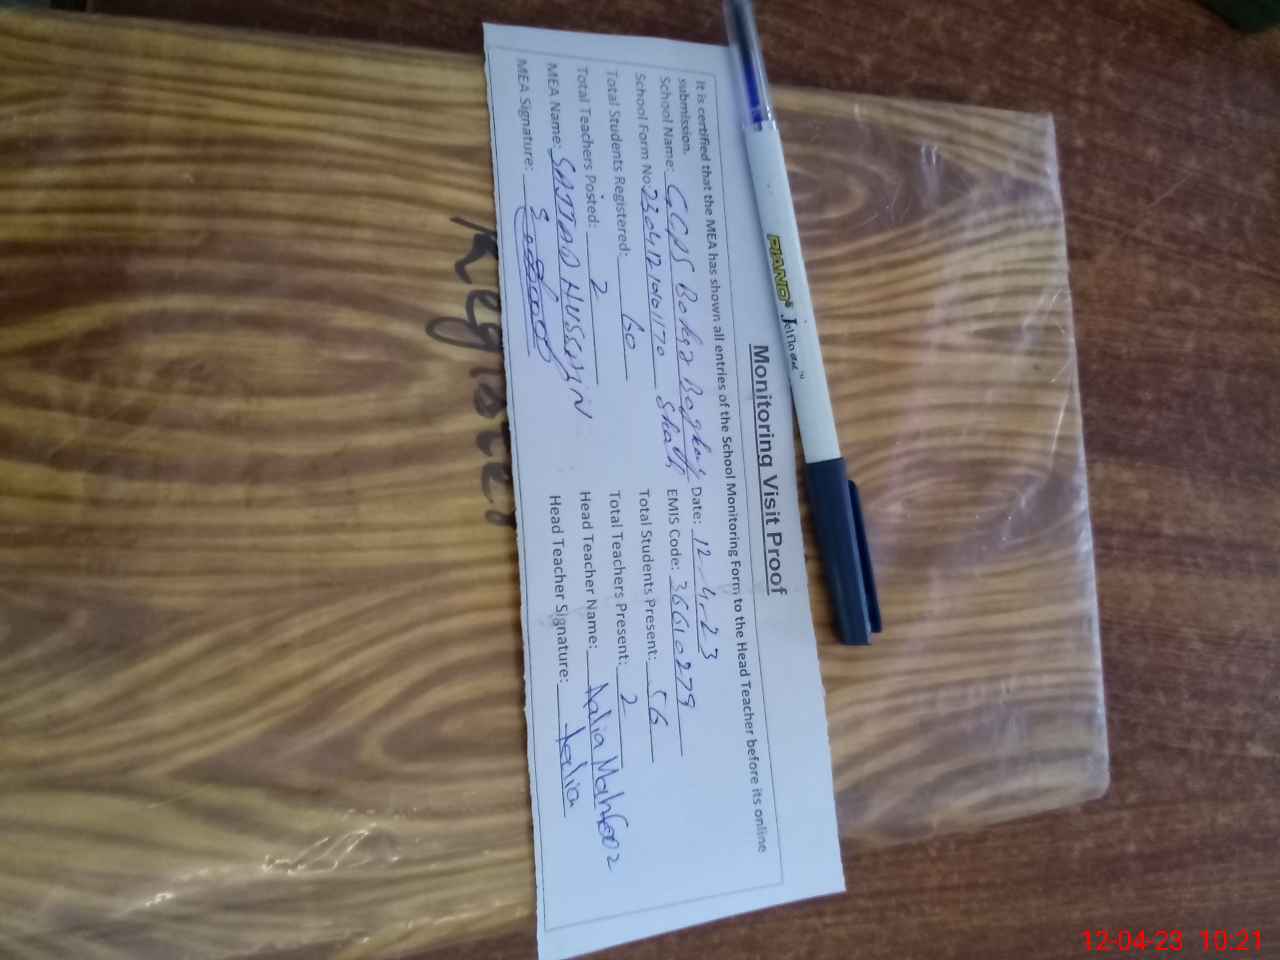 Monitoring Visit Proof
It is certified that the MEA has shown all entries of the School Monitoring Form to the Head Teacher before its online
submission.
School Name: GGPS Bohga Date: 12-4-23
School Form No 230412 Shah EMIS Code: 36610279
Total Students Registered: 60 Total Students Present: 56
Total Teachers Posted: 2 Total Teachers Present: 2
MEA Name: SAJJAD HUSSAIN Head Teacher Name: Aalia Mahfooz
MEA Signature: Head Teacher Signature: Aalia
PIANO
Register
12-04-23 10:21